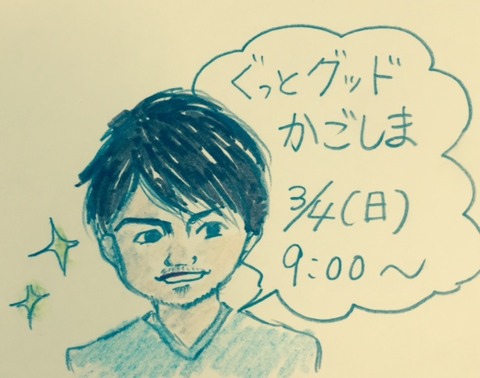 ぐっとグッド
かごしま
3/4(日)
9:00〜